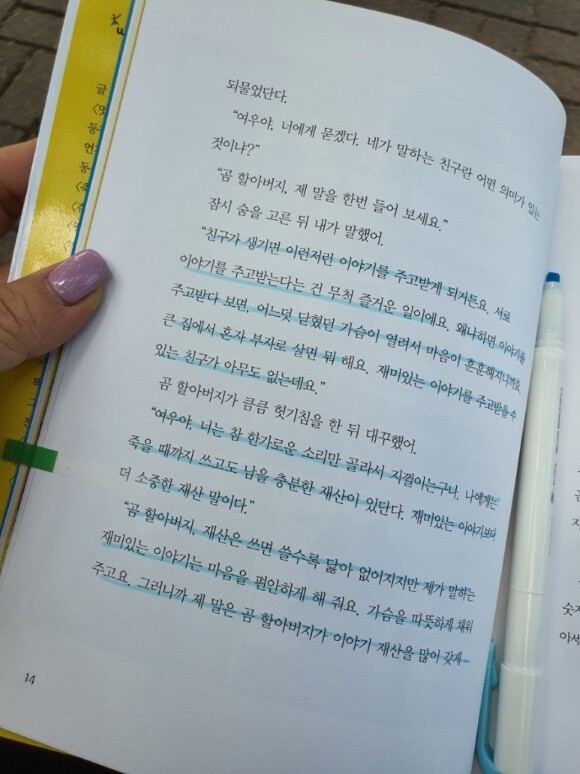 되물었단다.
“여우야, 너에게 묻겠다. 네가 말하는 친구란 어떤 의미가 있는
것이냐?”
“곰 할아버지, 제 말을 한번 들어 보세요.”
잠시 숨을 고른 뒤 내가 말했어.
“친구가 생기면 이런저런 이야기를 주고받게 되거든요. 서로
이야기를 주고받는다는 건 무척 즐거운 일이에요. 왜냐하면 이야기를
주고받다 보면, 어느덧 닫혔던 가슴이 열려서 마음이 훈훈해지니까요.
큰 집에서 혼자 부자로 살면 뭐 해요. 재미있는 이야기를 주고받을 수
있는 친구가 아무도 없는데요.”
곰 할아버지가 큼큼 헛기침을 한 뒤 대꾸했어.
“여우야, 너는 참 한가로운 소리만 골라서 지껄이는구나. 나에게는
죽을 때까지 쓰고도 남을 충분한 재산이 있단다. 재미있는 이야기보다
더 소중한 재산 말이다.”
“곰 할아버지, 재산은 쓰면 쓸수록 닳아 없어지지만 제가 말하는
재미있는 이야기는 마음을 편안하게 해 줘요. 가슴을 따뜻하게 채워
주고요. 그러니까 제 말은 곰 할아버지가 이야기 재산을 많이 갖게
14